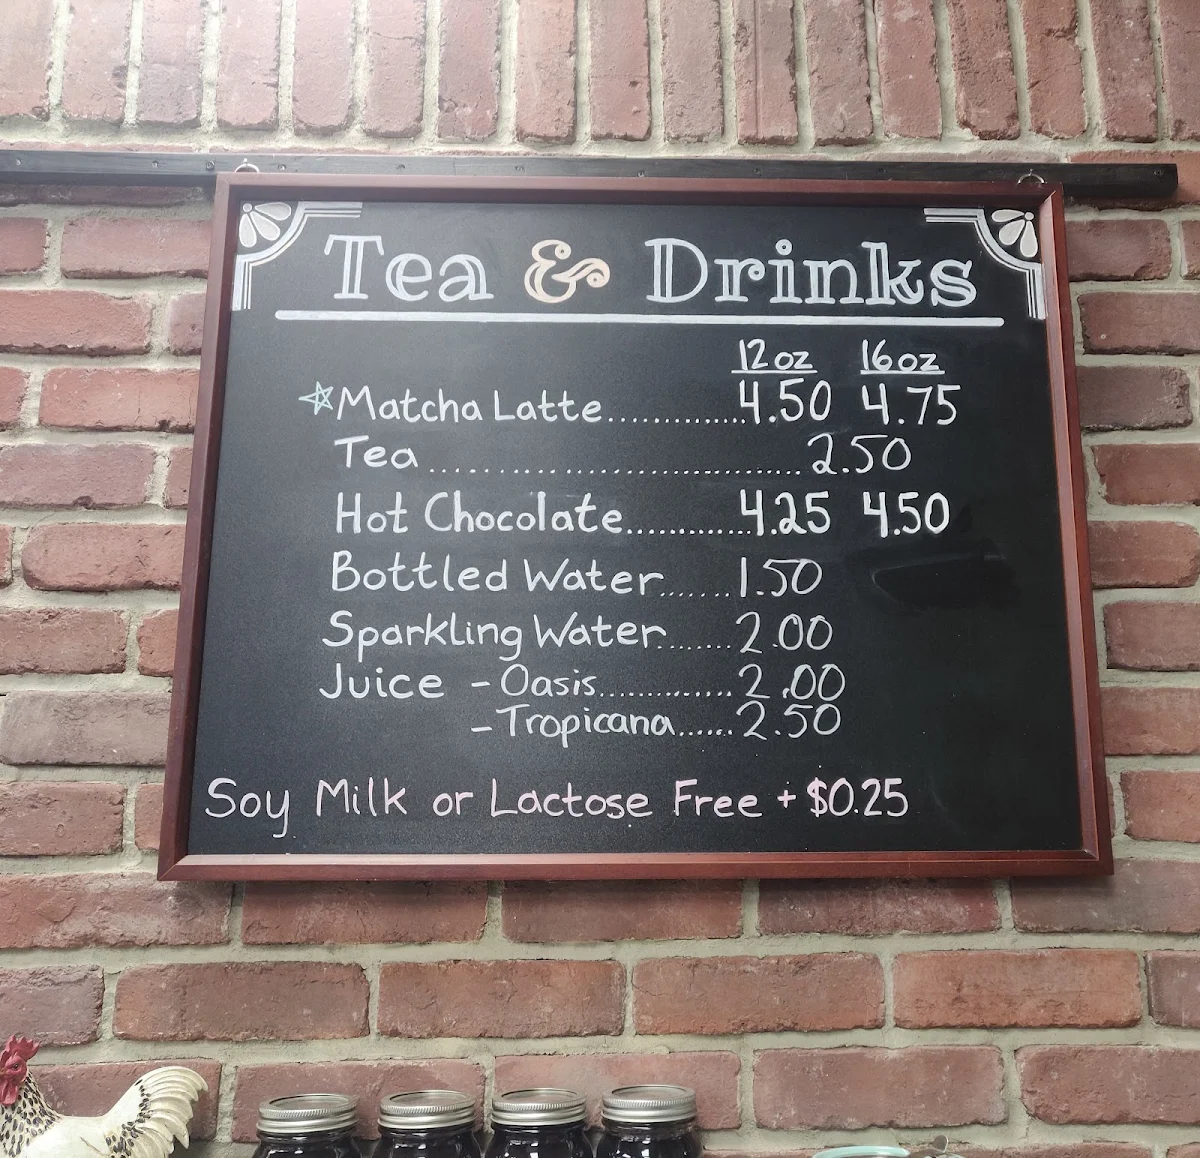 Tea & Drinks
12oz 16oz
☆Matcha Latte..............4.50 4.75
Tea..............................2.50
Hot Chocolate............4.25 4.50
Bottled Water.......1.50
Sparkling Water.......2.00
Juice - Oasis..............2.00
- Tropicana......2.50
Soy Milk or Lactose Free + $0.25